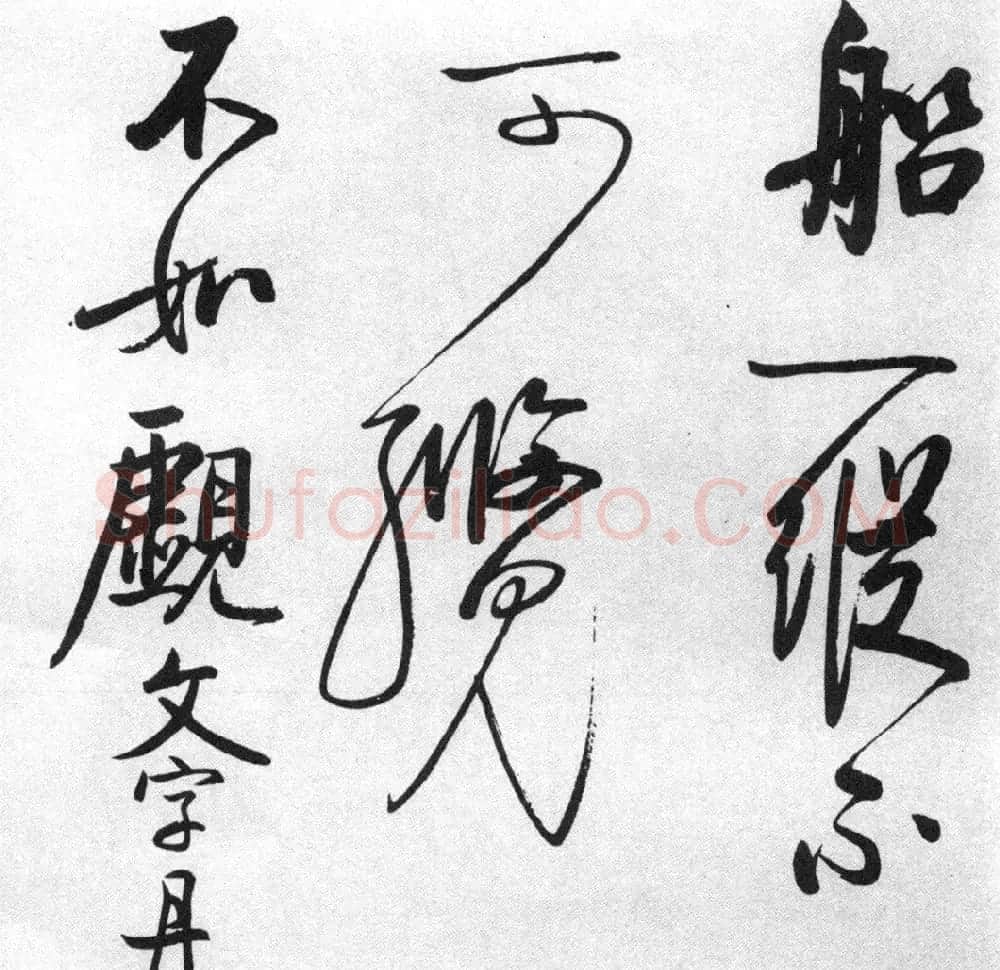 船一縱不
可纜
不如覷文字丹
Shufaziliao.COM